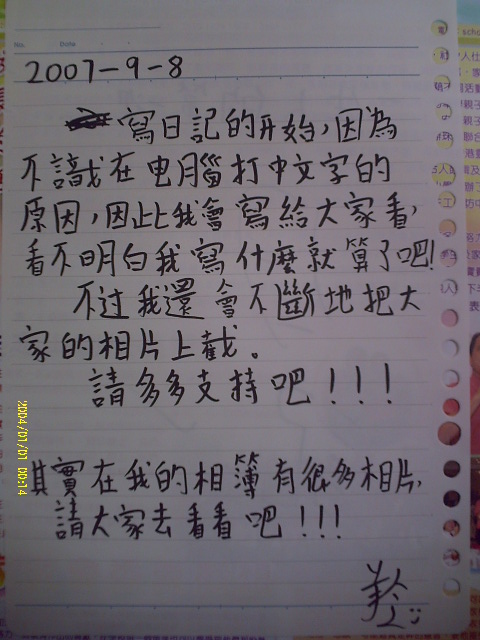 No.
Date
2007-9-8
寫日記的开始，因為
不諳或在电腦打中文字的
原因，因此我會寫給大家看，
看不明白我寫什麼就算了吧！
不过我還會不斷地把大
家的相片上載。
請多多支持吧！！！
其實在我的相簿有很多相片，
請大家去看看吧！！！
2004/01/01 00:14